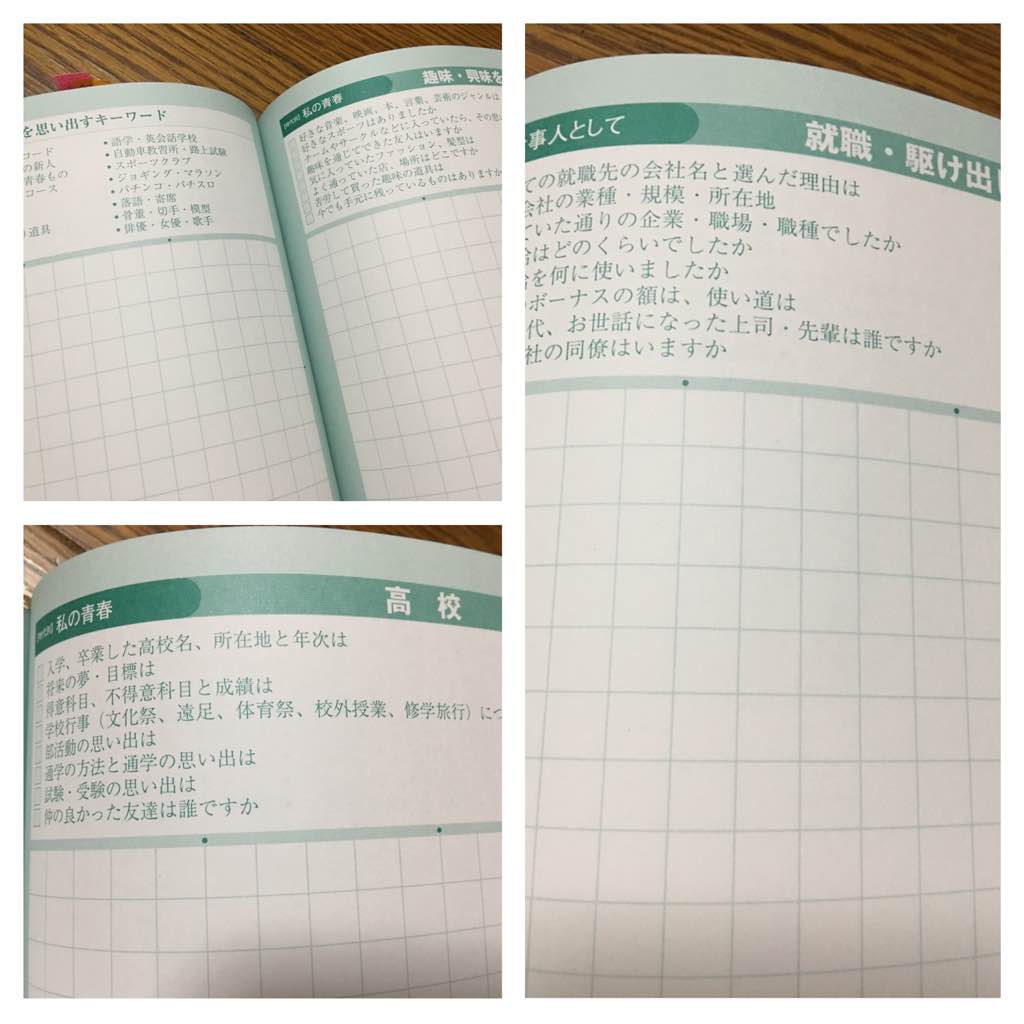 を思い出すキーワード
コード
の新人
青春もの
コース
道具
•語学・英会話学校
•自動車教習所・路上試験
•スポーツクラブ
•ジョギング・マラソン
•パチンコ・パチスロ
•落語・寄席
•骨董・切手・模型
•俳優・女優・歌手
[時代別] 私の青春
趣味・興味を
好きな音楽、映画、本、言葉、芸術のジャンルは
好きなスポーツはありましたか
チームやサークルなどに入っていたら、その思い
趣味を通じてできた友人はいますか
気に入っていたファッション、髪型は
よく通っていた店、場所はどこですか
苦労して買った趣味の道具は
今でも手元に残っているものはありますか
事人として
就職・駆け出し
ての就職先の会社名と選んだ理由は
会社の業種・規模・所在地
ていた通りの企業・職場・職種でしたか
給はどのくらいでしたか
給を何に使いましたか
ボーナスの額は、使い道は
代、お世話になった上司・先輩は誰ですか
社の同僚はいますか
[時代別] 私の青春
高校
入学、卒業した高校名、所在地と年次は
将来の夢・目標は
得意科目、不得意科目と成績は
学校行事（文化祭、遠足、体育祭、校外授業、修学旅行）につ
部活動の思い出は
通学の方法と通学の思い出は
試験・受験の思い出は
仲の良かった友達は誰ですか